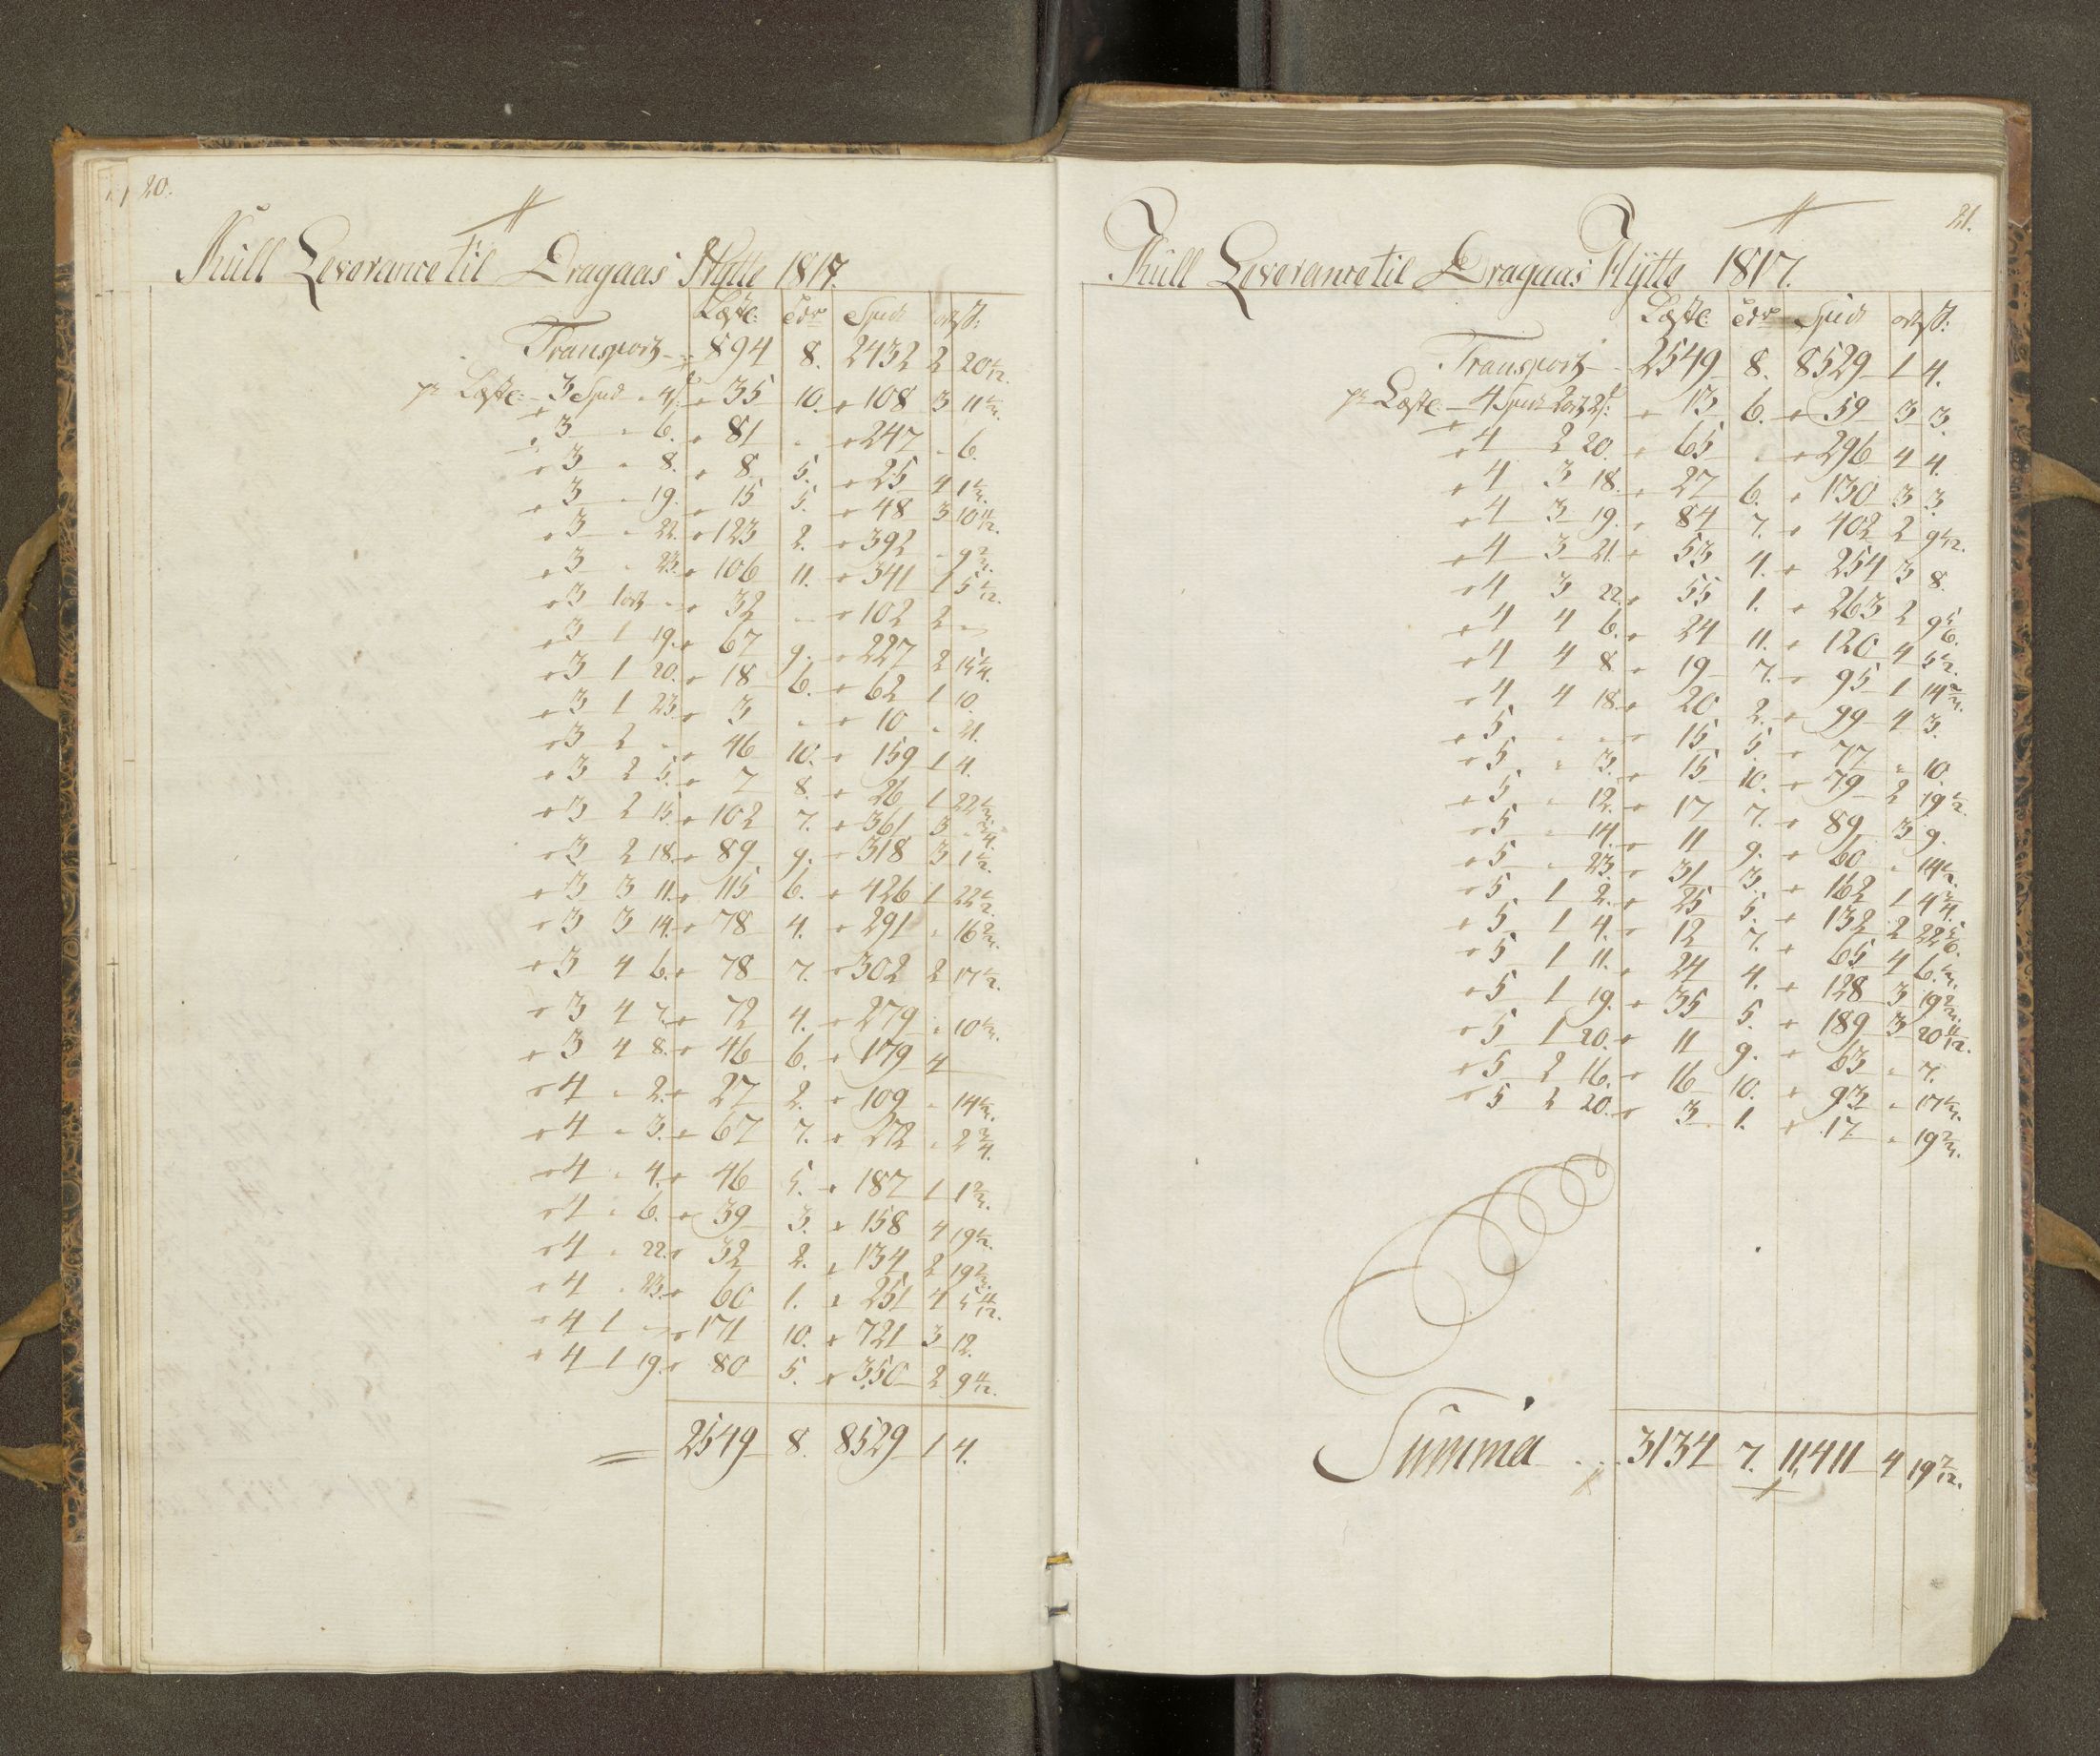 20.
Kull Leverance til Dragaas Hytte 1817.
Læste: Tdr Spd ort ß:
Transport 894 8. 2432 2 20 1/12.
pr Læste: 3 Spd " 4 ß: 35 10. 108 3 11 1/3.
3 " 6. 81 " 247 " 6.
3 " 8. 8 5. 25 4 1 1/3.
3 " 19. 15 5. 48 3 10 11/12.
3 " 22. 123 2. 392 " 9 2/3.
3 " 23. 106 11. 341 1 5 1/12.
3 1 ort " 32 " 102 2 "
3 1 19. 67 9. 227 2 15 1/4.
3 1 20. 18 6. 62 1 10.
3 1 23. 3 " 10 " 21.
3 2 " 46 10. 159 1 4.
3 2 5. 7 8. 26 1 22 1/3.
3 2 15. 102 7. 361 3 " 3/4.
3 2 18. 89 9. 318 3 1 1/2.
3 3 11. 115 6. 426 1 22 1/2.
3 3 14. 78 4. 291 " 16 2/3.
3 4 6. 78 7. 302 2 17 1/2.
3 4 7. 72 4. 279 " 10 1/3.
3 4 8. 46 6. 179 4
4 " 2. 27 2. 109 " 14 1/3.
4 " 3. 67 7. 272 " 2 3/4.
4 " 4. 46 5. 187 1 1 2/3.
4 " 6. 39 3. 158 4 19 1/2.
4 " 22. 32 2. 134 2 19 2/3.
4 " 23. 60 1. 251 4 5 11/12.
4 1 " 171 10. 721 3 12.
4 1 19. 80 5. 350 2 9 11/12.
2549 8. 8529 1 4.
21.
Kull Leverance til Dragaas Hytte 1817.
Læste Tdr Spd ort ß:
Transport 2549 8. 8529 1 4.
pr Læste 4 Spd 2 ort 2 ß: 13 6. 59 3 3.
4 2 20. 65 " 296 4 4.
4 3 18. 27 6. 130 3 3.
4 3 19. 84 7. 402 2 9 1/12.
4 3 21. 53 4. 254 3 8.
4 3 22. 55 1. 263 2 9 5/6.
4 4 6. 24 11. 120 4 5 1/2.
4 4 8. 19 7. 95 1 14 2/3.
4 4 18. 20 2. 99 4 3.
5 " " 15 5 77 " 10.
5 " 3. 15 10. 79 2 19 1/2.
5 " 12. 17 7. 89 3 9.
5 " 14. 11 9. 60 " 14 1/2.
5 " 23. 31 3. 162 1 4 3/4.
5 1 2. 25 5. 132 2 22 5/6.
5 1 4. 12 7. 65 4 6 1/3.
5 1 11. 24 4. 128 3 19 2/3.
5 1 19. 35 5. 189 3 20 11/12.
5 1 20. 11 9. 63 " 7.
5 2 16. 16 10. 93 " 17 1/3.
5 2 20. 3 1. 17 " 19 2/3.
Summa 3134 7. 11,411 4 19 7/12.